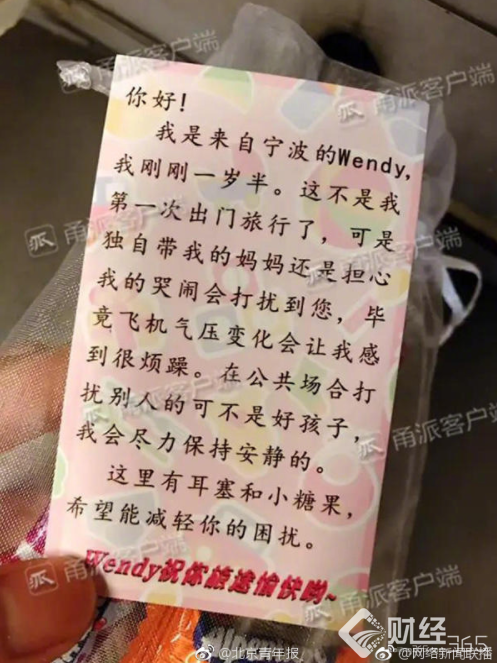 你好!
我是来自宁波的Wendy,
我刚刚一岁半。这不是我
第一次出门旅行了，可是
独自带我的妈妈还是担心
我的哭闹会打扰到您，毕
竟飞机气压变化会让我感
到很烦躁。在公共场合打
扰别人的可不是好孩子，
我会尽力保持安静的。
这里有耳塞和小糖果，
希望能减轻你的困扰。
Wendy祝你旅途愉快哟~
甬派客户端
甬派客户端
甬派客户端
甬派客户端
甬派客户端
甬派客户端
甬派客户端
财经365
@北京青年报
@网络新闻联播